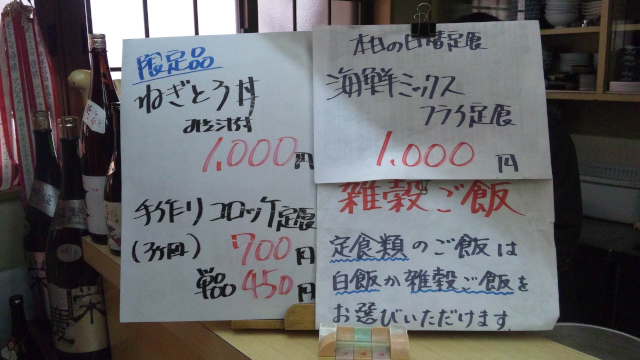 限定品
ねぎとろ丼
みそ汁付
1,000円
手作りコロッケ定食
(3ヶ同) 700円
単品 450円
本日の日替定食
海鮮ミックス
フライ定食
1,000円
雑穀ご飯
定食類のご飯は
白飯か雑穀ご飯を
お選びいただけます